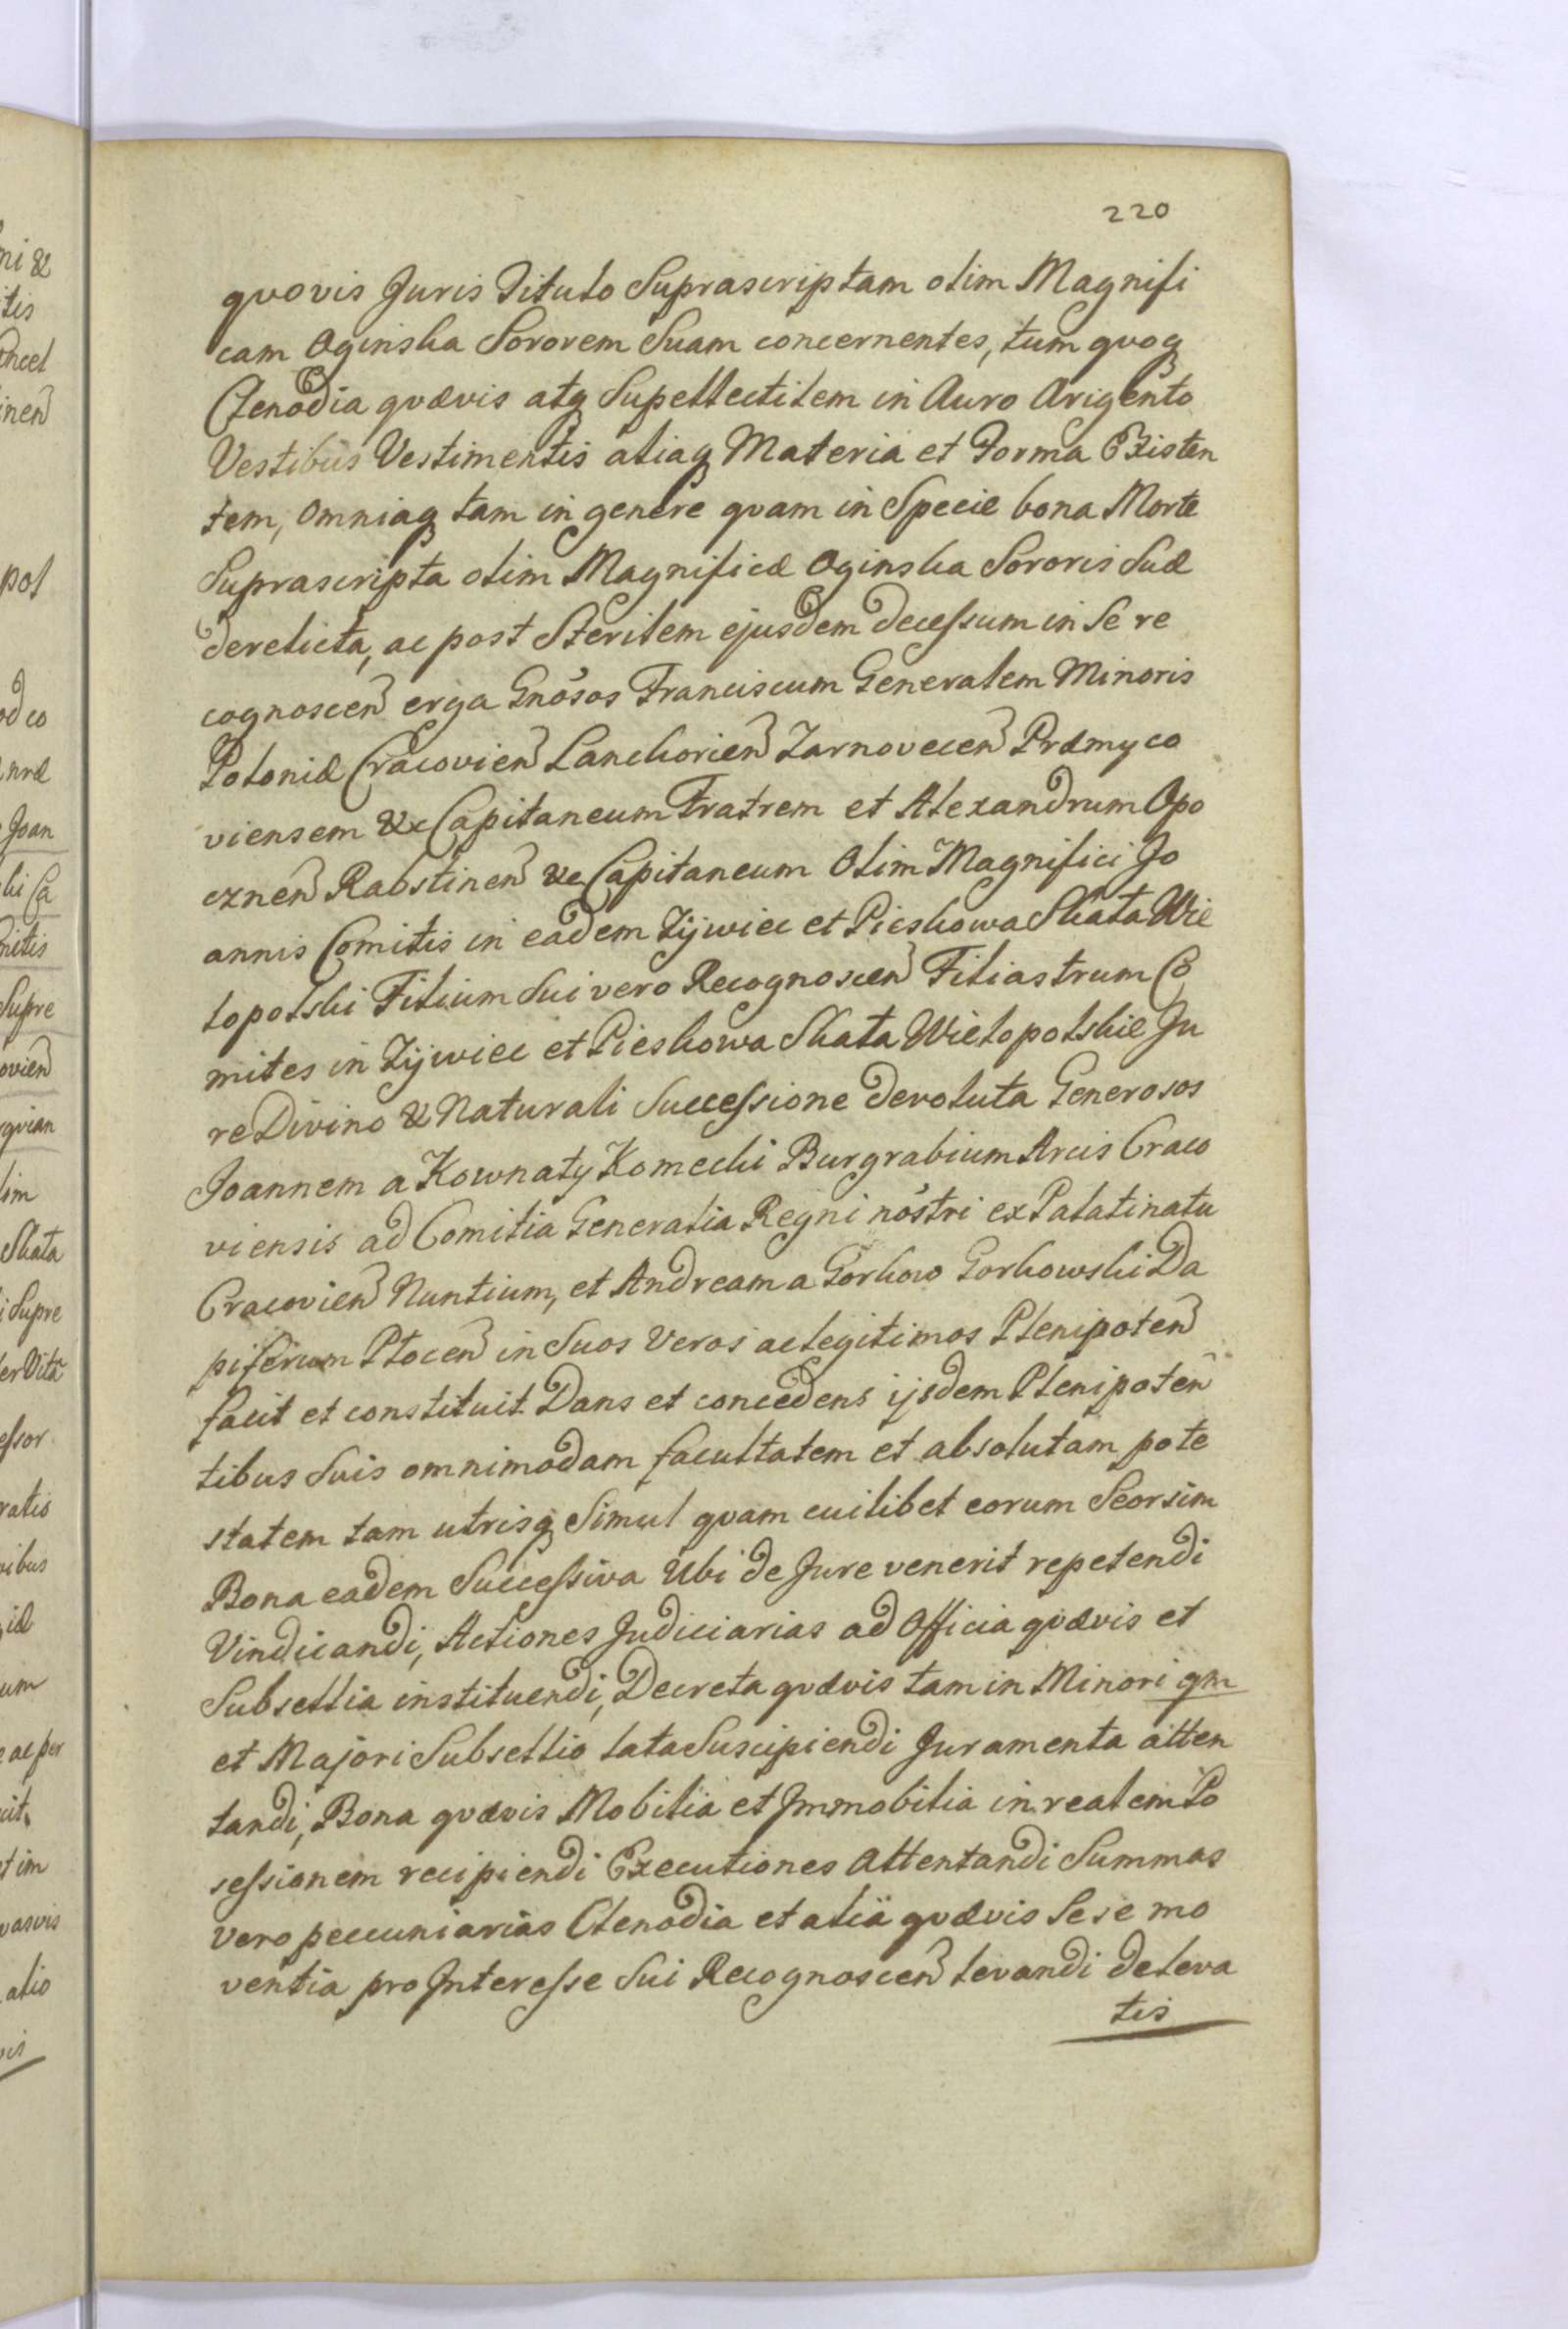 220
quovis Juris Titulo Suprascriptam olim Magnifi
cam Oginska Sororem Suam concernentes, tum quoq
Clenodia quævis atq Supellectilem in Auro Arigento
Vestibus Vestimentis aliaq Materia et Forma Existen
tem, omniaq tam in genere quam in Specie bona Morte
Suprascripta olim Magnificæ Oginska Sororis Suæ
derelicta, ac post Sterilem ejusdem decessum in Se re
cognoscen erga Gnosos Franciscum Generalem Minoris
Poloniæ Cracovien Lanckorien Zarnovecen Præmyco
viensem &c Capitaneum Fratrem et Alexandrum Opo
cznen Rabstinen &c Capitaneum Olim Magnifici Jo
annis Comitis in eadem Zijwiec et Pieskowa Skała Wie
lopolski Filium Sui vero Recognoscen Filiastrum Co
mites in Zijwiec et Pieskowa Skała Wielopolskie Ju
re Divino & Naturali Successione devoluta Generosos
Joannem a Kownaty Komecki Burgrabium Arcis Craco
viensis ad Comitia Generalia Regni nostri ex Palatinatu
Cracovien Nuntium, et Andream a Gorkow Gorkowski Da
piferum Plocen in Suos Veros ac legitimos Plenipoten
facit et constituit. Dans et concedens ijsdem Plenipoten
tibus Suis omnimodam facultatem et absolutam pote
statem tam utrisq Simul quam cuilibet eorum Seorsim
Bona eadem Successiva Ubi de Jure venerit repetendi
Vindicandi, Actiones Judiciarias ad Officia quævis et
Subsellia instituendi, Decreta quævis tam in Minori qm
et Majori Subsellio lata Suscipiendi Juramenta atten
tandi, Bona quævis Mobilia et Immobilia in realem Po
sessionem recipiendi Executiones Attentandi Summas
vero peccuniarias Clenodia et alia quævis Sese mo
ventia pro Interesse Sui Recognoscen levandi de leva
tis